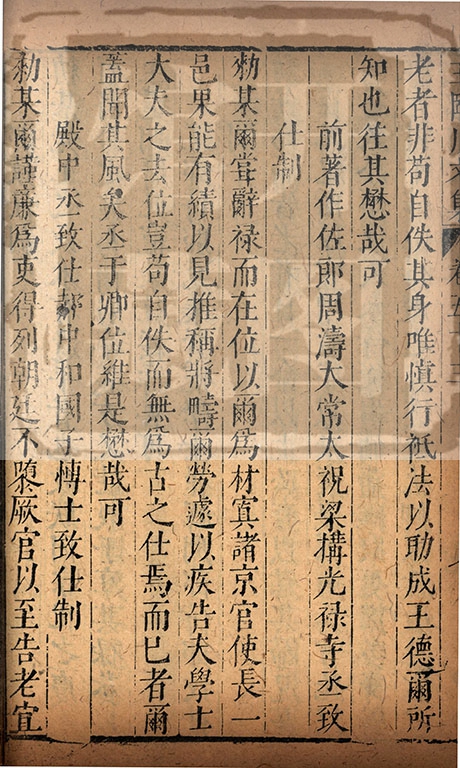 王臨川文集 卷五十三
老者非苟自佚其身唯慎行祇法以助成王德爾所
知也往其懋哉可
前著作佐郎周濤大常太祝梁構光禄寺丞致
仕制
勑某爾嘗辭禄而在位以爾爲材寘諸京官使長一
邑果能有績以見推稱將疇爾勞遽以疾告夫學士
大夫之去位豈苟自佚而無爲古之仕焉而已者爾
蓋聞其風矣丞于卿位維是懋哉可
殿中丞致仕郝中和國子愽士致仕制
勑某爾謹廉爲吏得列朝廷不隳厥官以至告老宜